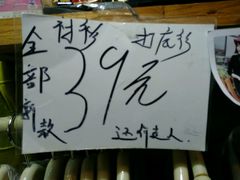 全部新款
衬衫 打底衫
39元
还价走人.